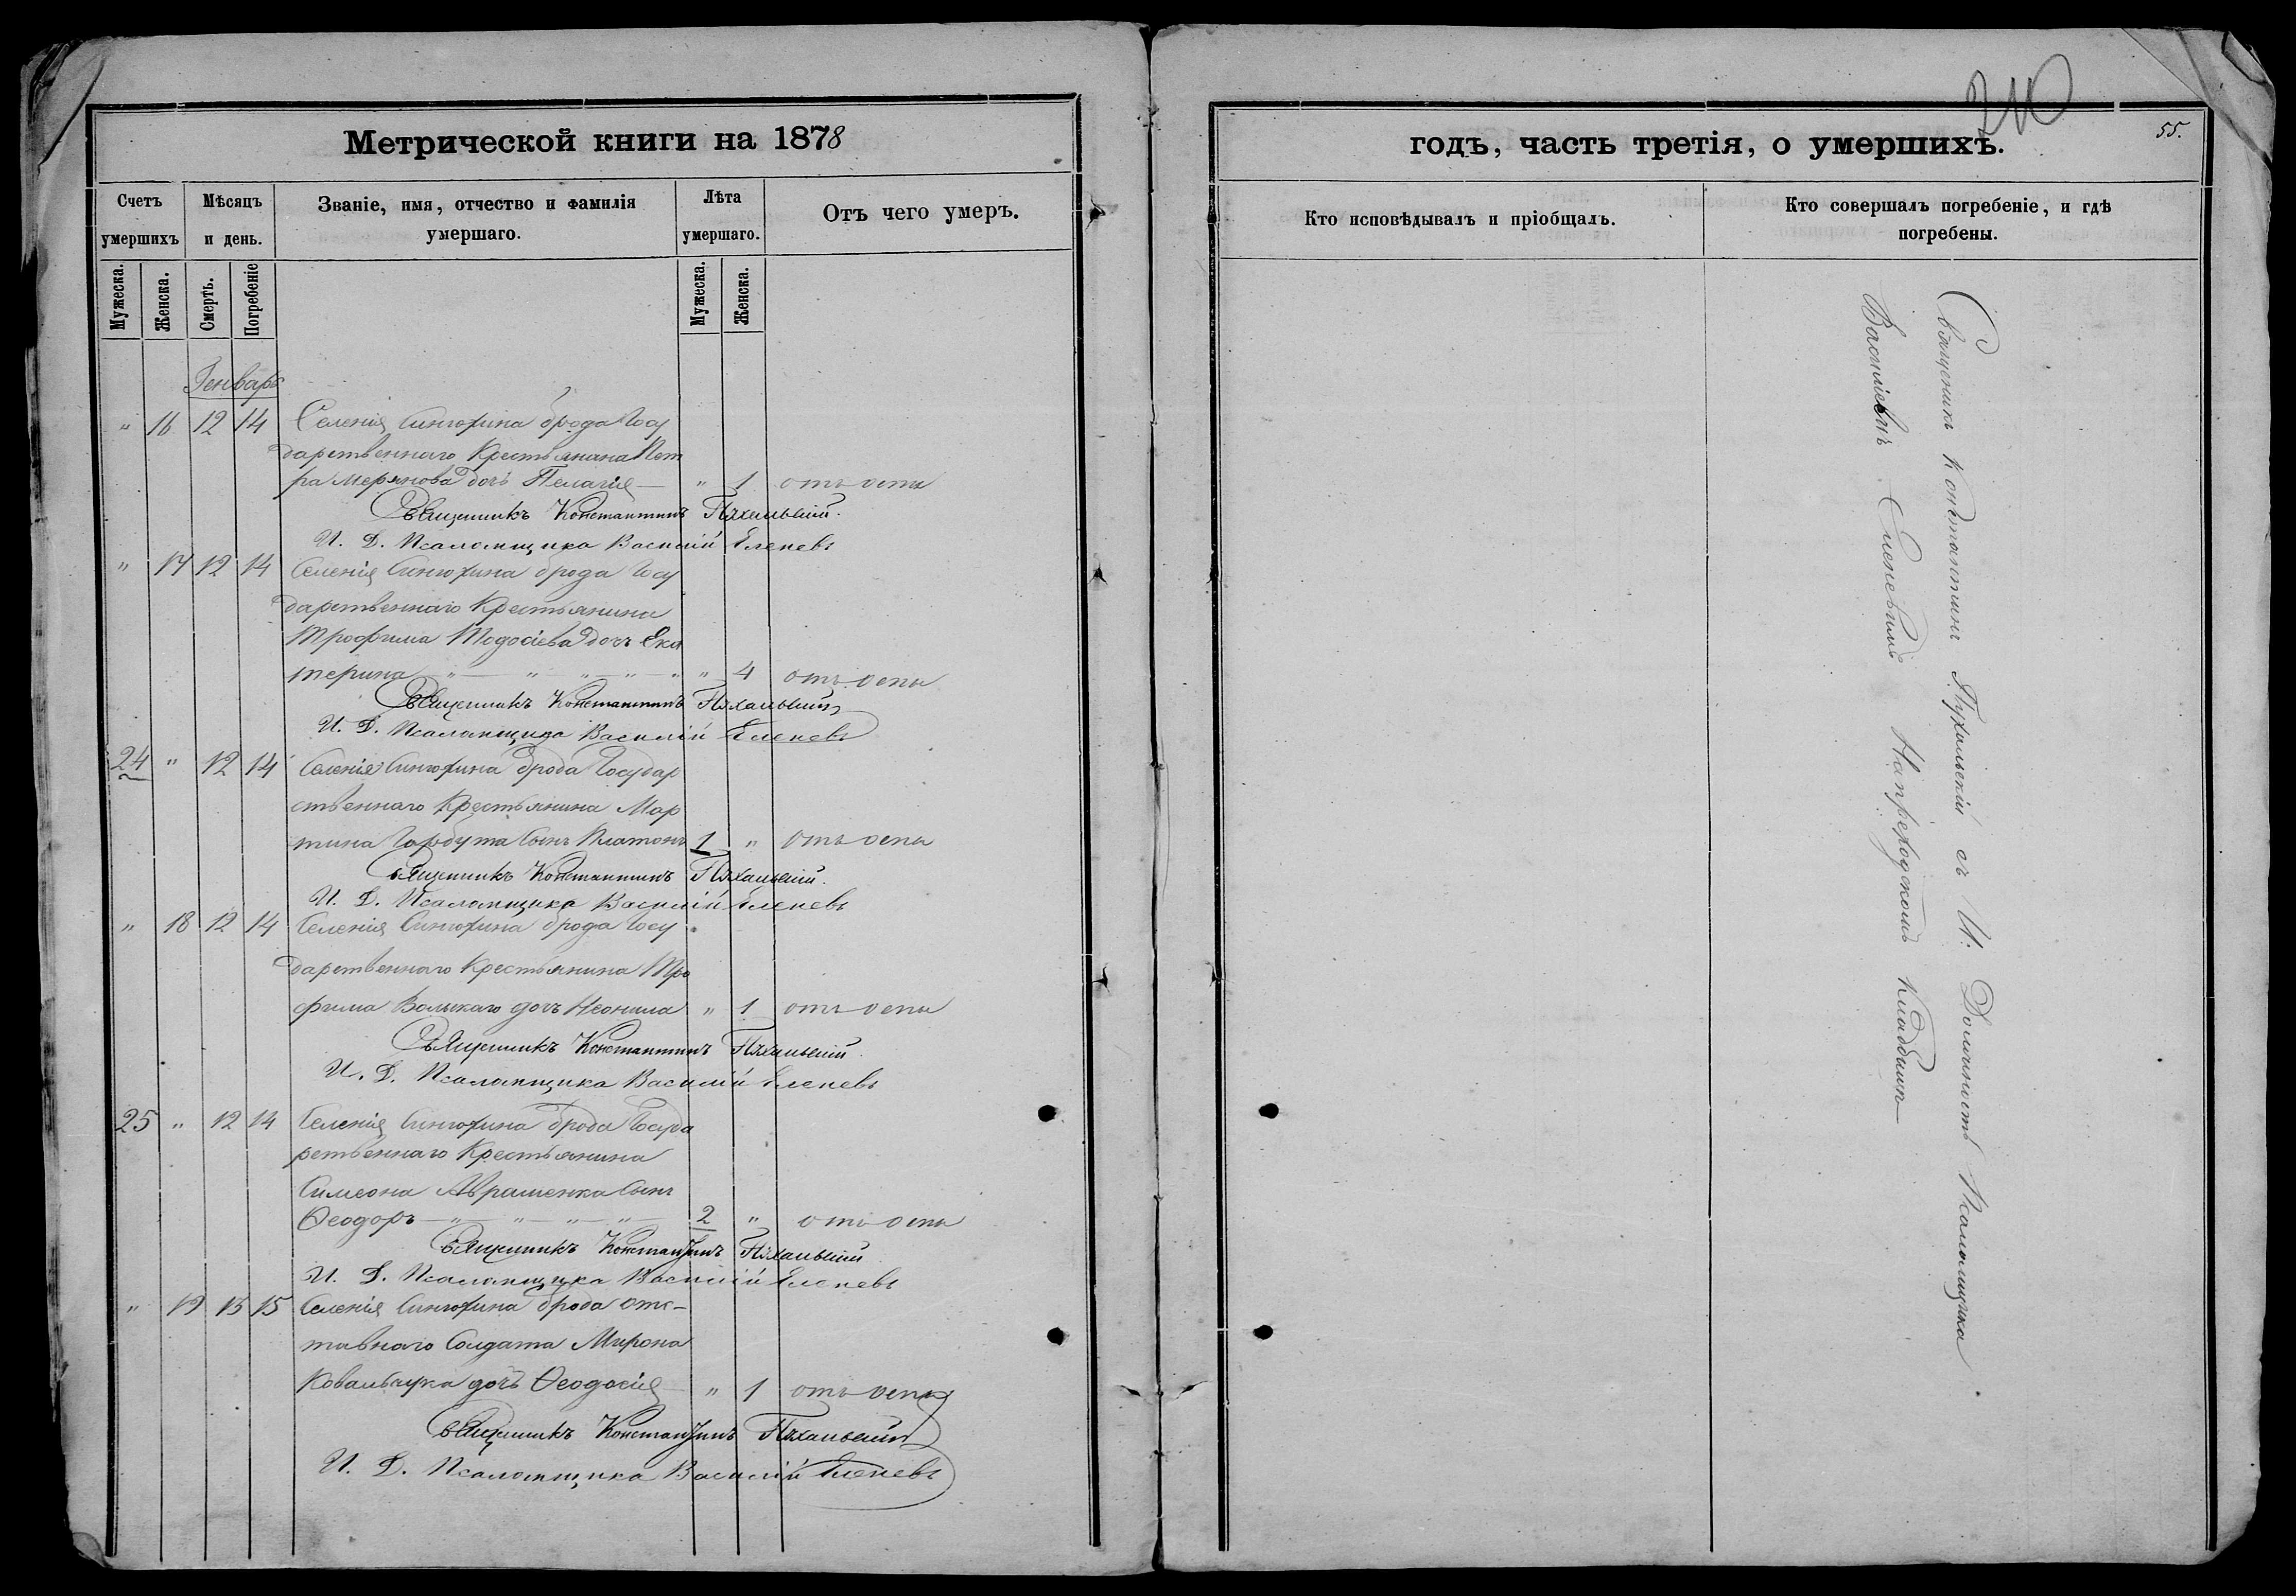 Метрической книги на 1878
Счетъ умершихъ
Мѣсяцъ и день.
Званіе, имя, отчество и фамилія умершаго.
Лѣта умершаго.
Отъ чего умеръ.
Мужеска. Женска. Смерть. Погребеніе Мужеска. Женска.
Генварь
" 16 12 14 Селенія Синюхина брода Госу
дарственнаго Крестьянина Пет
ра дочь Пелагія " 1 отъ оспы
Священникъ Константинъ Пухальскій.
И. Д. Псаломщика Василій Еленевъ
" 17 12 14 Селенія Синюхина брода Госу
дарственнаго Крестьянина
Трофима Тодосіева дочь Ека
терина " " " " " " 4 отъ оспы
Священникъ Константинъ Пухальскій
И. Д. Псаломщика Василій Еленевъ
24 " 12 14 Селенія Синюхина брода Государ
ственнаго Крестьянина Мар
тина Гарбута Сынъ Платонъ 1 " отъ оспы
Священникъ Константинъ Пухальскій.
И. Д. Псаломщика Василій Еленевъ
" 18 12 14 Селенія Синюхина брода Госу
дарственнаго Крестьянина Тро
фима дочь Неонила " 1 отъ оспы
Священникъ Константинъ Пухальскій.
И. Д. Псаломщика Василій Еленевъ
25 " 12 14 Селенія Синюхина брода Госуда
рственнаго Крестьянина
Симеона Авраменка Сынъ
Ѳеодоръ " " " " 2 " отъ оспы
Священникъ Константинъ Пухальскій
И. Д. Псаломщика Василій Еленевъ
" 19 13 15 Селенія Синюхина брода отс-
тавнаго Солдата Мирона
Ковальчука дочь Ѳеодосія " 1 отъ оспы
Священникъ Константинъ Пухальскій
И. Д. Псаломщика Василій Еленевъ
240
55.
годъ, часть третія, о умершихъ.
Кто исповѣдывалъ и пріобщалъ.
Кто совершалъ погребеніе, и гдѣ погребены.
Священникъ Константинъ Пухальскій съ И. Должность Псаломщика
Василіемъ Еленевымъ На приходскомъ Кладбищѣ